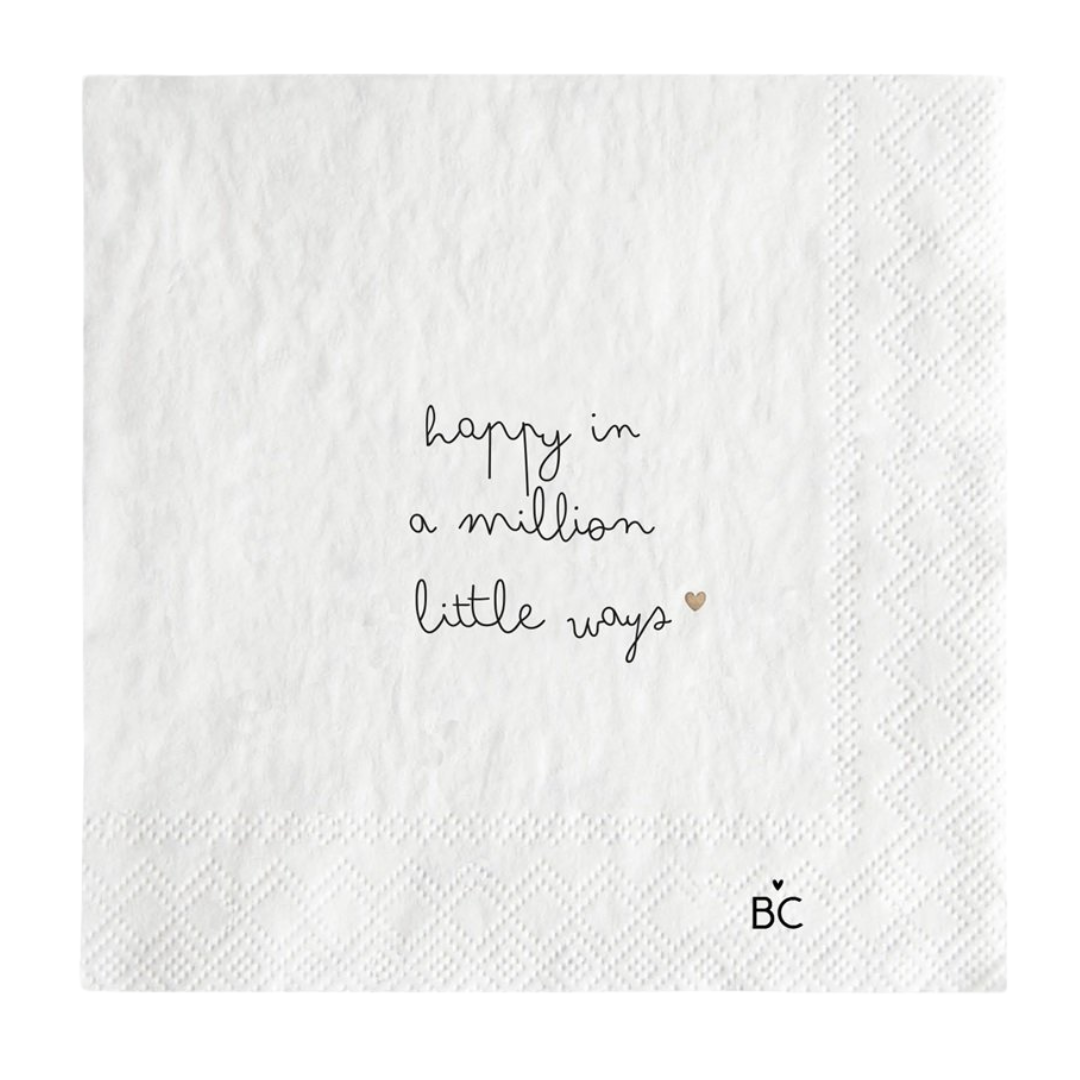 happy in
a million
little ways
BC